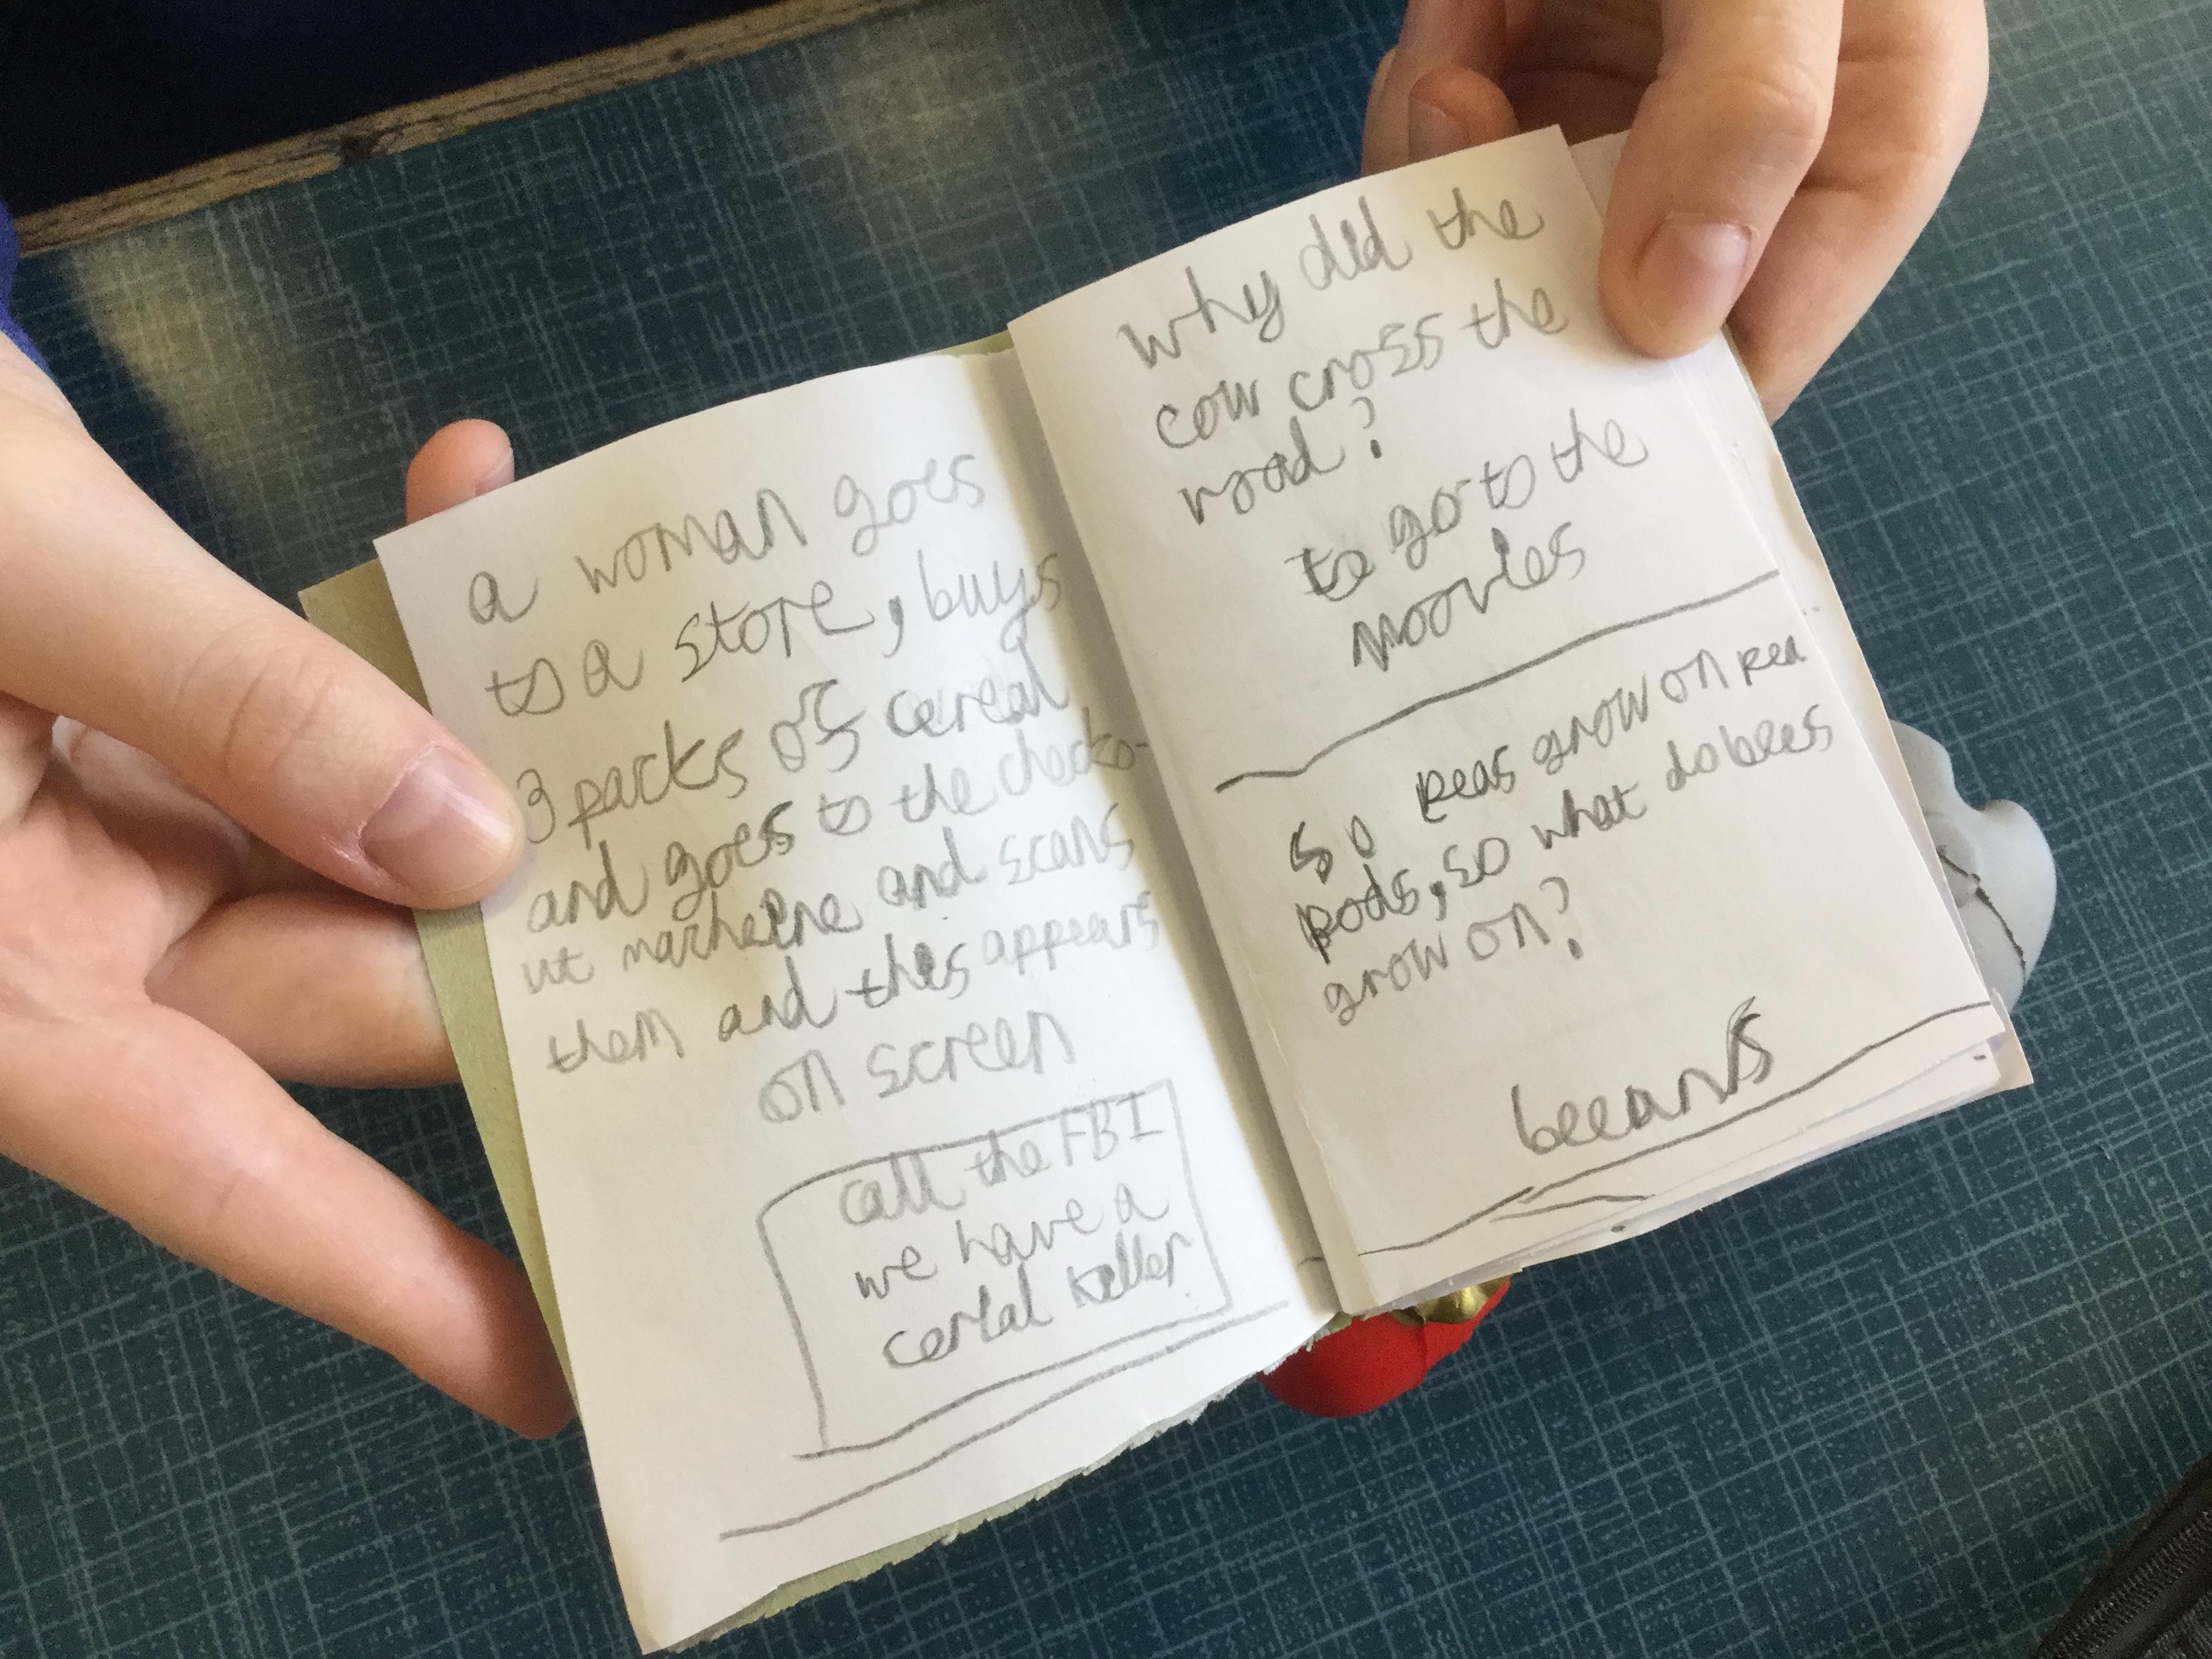 a woman goes
to a store, buys
3 packs of cereal
and goes to the checko-
ut macheine and scans
them and this appears
on screen
call the FBI
we have a
cerial killer
why did the
cow cross the
road?
to go to the
moovies
so peas grow on pea
pods, so what do bees
grow on?
beeans